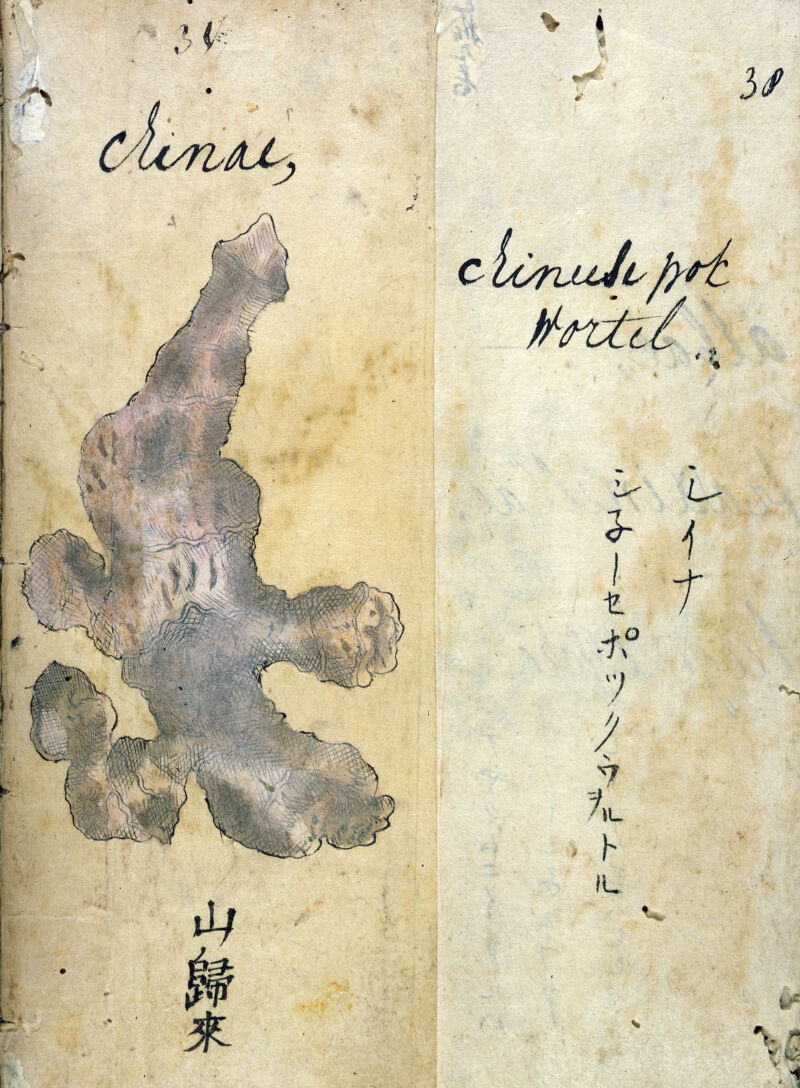 34
chinae,
山歸來
38
chineese pok
wortel
シイナ
シ子ーセポックウヲルトル